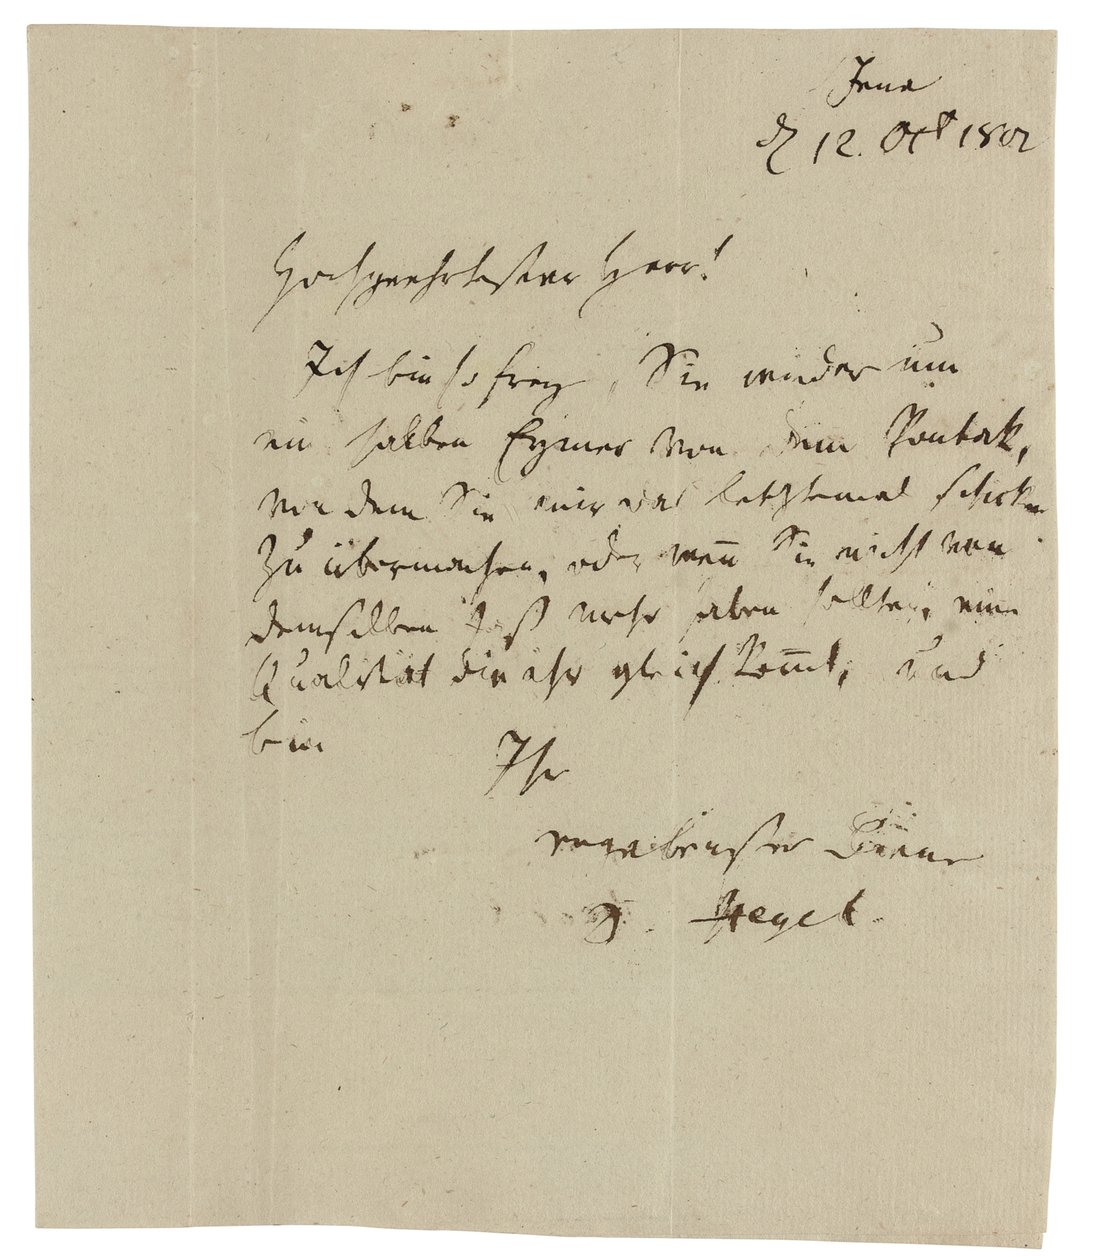 Jena
d. 12. Oct 1802
Hochgeehrtester Herr!
Ich bin so frey, Sie wieder um
ein halben Eymer von dem Pontak,
von dem Sie mir das letztemal schickten
zu übermachen, oder wen̄ Sie nicht von
demselben Faß mehr haben sollten, eine
Qualität die ihr gleich kom̄t, und
bin
Ihr
ergebenster Diener
D. Hegel.